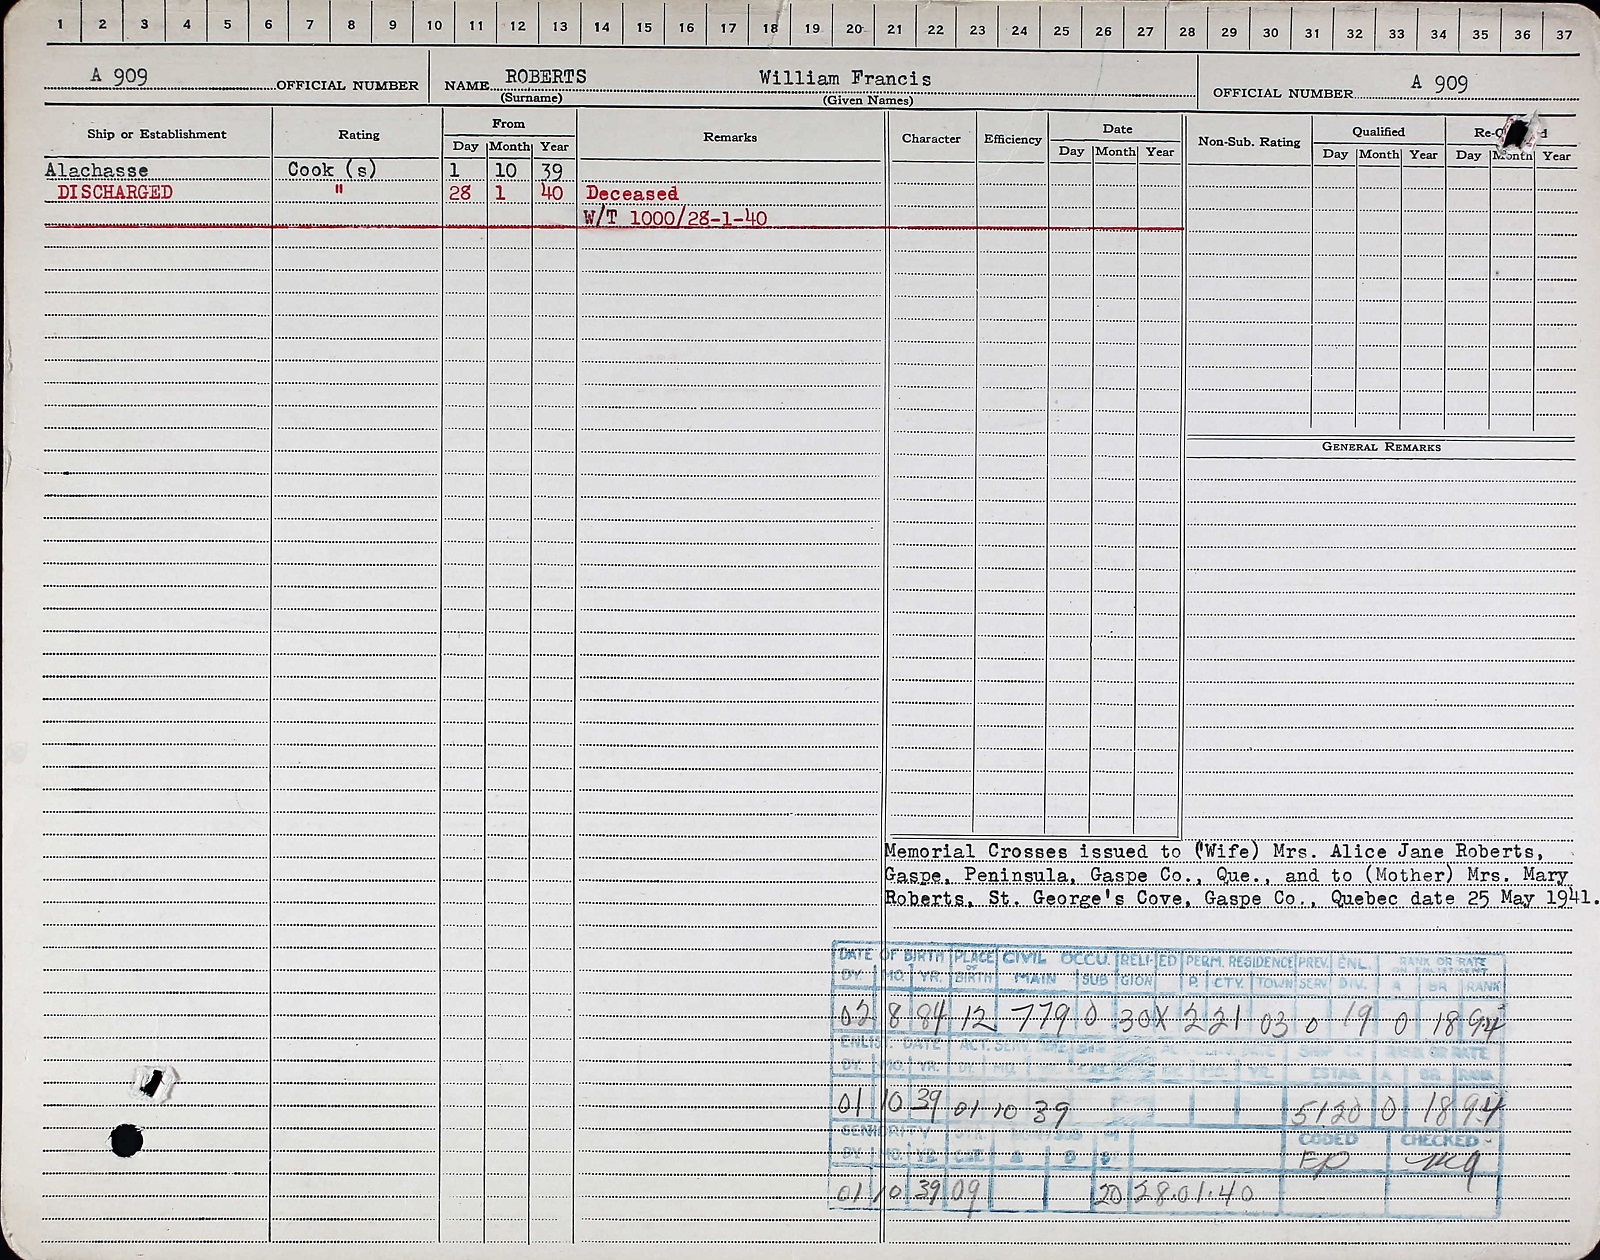 1 2 3 4 5 6 7 8 9 10 11 12 13 14 15 16 17 18 19 20 21 22 23 24 25 26 27 28 29 30 31 32 33 34 35 36 37
A 909 OFFICIAL NUMBER NAME ROBERTS William Francis OFFICIAL NUMBER A 909
(Surname) (Given Names)
Ship or Establishment Rating From Remarks Character Efficiency Date Non-Sub. Rating Qualified
Day Month Year Day Month Year Day Month Year Day Month Year
Alachasse Cook (s) 1 10 39
DISCHARGED " 28 1 40 Deceased
W/T 1000/28-1-40
GENERAL REMARKS
Memorial Crosses issued to (Wife) Mrs. Alice Jane Roberts,
Gaspe, Peninsula, Gaspe Co., Que., and to (Mother) Mrs. Mary
Roberts, St. George's Cove, Gaspe Co., Quebec date 25 May 1941.
DATE OF BIRTH PLACE OF CIVIL OCCU. RELI- ED PERM. RESIDENCE PREV. ENL. RANK OR RATE
DY. MO. YR. BIRTH MAIN SUB GION P. CTY. TOWN SERV DIV. A BR RANK
02 8 84 12 779 0 30 X 2 21 03 0 19 0 18 94
ENLIST. DATE ACT. SERV. RANK OR RATE
DY. MO. YR. ESTAB. A BR RANK
01 10 39 01 10 39 5120 0 18 94
SENIORITY CODED CHECKED
DY. MO. YR. EP
01 10 39 09 20 28.01.40